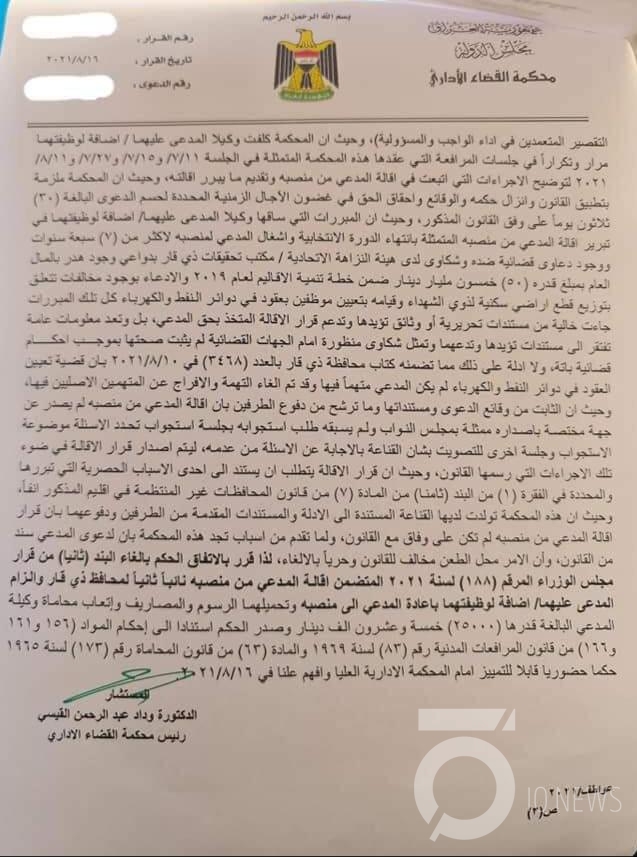 بسم الله الرحمن الرحيم
جمهورية العراق
مجلس الدولة
محكمة القضاء الأداري
رقم القرار :
تاريخ القرار : ٢٠٢١/٨/١٦
رقم الدعوى :
التقصير المتعمدين في اداء الواجب والمسؤولية)، وحيث ان المحكمة كلفت وكيلا المدعى عليهما / اضافة لوظيفتهما
مرار وتكراراً في جلسات المرافعة التي عقدها هذه المحكمة المتمثلة في الجلسة ٧/١١ و٧/١٥ و٧/٢٧ و٨/١١/
٢٠٢١ لتوضيح الاجراءات التي اتبعت في اقالة المدعي من منصبه وتقديم ما يبرر اقالته، وحيث ان المحكمة ملزمة
بتطبيق القانون وانزال حكمه والوقائع واحقاق الحق في غضون الآجال الزمنية المحددة لحسم الدعوى البالغة (٣٠)
ثلاثون يوماً على وفق القانون المذكور، وحيث ان المبررات التي ساقها وكيلا المدعى عليهما/ اضافة لوظيفتهما في
تبرير اقالة المدعي من منصبه المتمثلة بأنتهاء الدورة الانتخابية واشغال المدعي لمنصبه لاكثر من (٧) سبعة سنوات
ووجود دعاوى قضائية ضده وشكاوى لدى هيئة النزاهة الاتحادية / مكتب تحقيقات ذي قار بدواعي وجود هدر بالمال
العام بمبلغ قدره (٥٠) خمسون مليار دينار ضمن خطة تنمية الاقاليم لعام ٢٠١٩ والادعاء بوجود مخالفات تتعلق
بتوزيع قطع اراضي سكنية لذوي الشهداء وقيامه بتعيين موظفين بعقود في دوائر النفط والكهرباء كل تلك المبررات
جاءت خالية من مستندات تحريرية أو وثائق تؤيدها وتدعم قرار الاقالة المتخذ بحق المدعي، بل وتعد معلومات عامة
تفتقر الى مستندات تؤيدها وتدعمها وتمثل شكاوى منظورة امام الجهات القضائية لم يثبت صحتها بموجب احكام
قضائية باتة، ولا ادلة على ذلك مما تضمنه كتاب محافظة ذي قار بالعدد (٣٤٦٨) في ٢٠٢١/٨/١٠ بان قضية تعيين
العقود في دوائر النفط والكهرباء لم يكن المدعي متهماً فيها وقد تم الغاء التهمة والافراج عن المتهمين الاصليين فيها،
وحيث ان الثابت من وقائع الدعوى ومستنداتها وما ترشح من دفوع الطرفين بان اقالة المدعي من منصبه لم يصدر عن
جهة مختصة باصداره ممثلة بمجلس النواب ولم يسبقه طلب استجوابه بجلسة استجواب تحدد الاسئلة موضوعة
الاستجواب وجلسة اخرى للتصويت بشان القناعة بالاجابة عن الاسئلة من عدمه، ليتم اصدار قرار الاقالة في ضوء
تلك الاجراءات التي رسمها القانون، وحيث ان قرار الاقالة يتطلب ان يستند الى احدى الاسباب الحصرية التي تبررها
والمحددة في الفقرة (١) من البند (ثامناً) من المادة (٧) من قانون المحافظات غير المنتظمة في اقليم المذكور انفاً،
وحيث ان هذه المحكمة تولدت لديها القناعة المستندة الى الادلة والمستندات المقدمة من الطرفين ودفوعهما بان قرار
اقالة المدعي من منصبه لم تكن على وفاق مع القانون، ولما تقدم من اسباب تجد هذه المحكمة بان لدعوى المدعي سند
من القانون، وأن الامر محل الطعن مخالف للقانون وحرياً بالالغاء، لذا قرر بالاتفاق الحكم بالغاء البند (ثانيا) من قرار
مجلس الوزراء المرقم (١٨٨) لسنة ٢٠٢١ المتضمن اقالة المدعي من منصبه نائباً ثانياً لمحافظ ذي قار والزام
المدعى عليهما/ اضافة لوظيفتهما باعادة المدعي الى منصبه وتحميلهما الرسوم والمصاريف وإتعاب محاماة وكيلة
المدعي البالغة قدرها (٢٥٠٠٠) خمسة وعشرون الف دينار وصدر الحكم استنادا الى إحكام المواد (١٥٦ و١٦١
و١٦٦) من قانون المرافعات المدنية رقم (٨٣) لسنة ١٩٦٩ والمادة (٦٣) من قانون المحاماة رقم (١٧٣) لسنة ١٩٦٥
حكما حضوريا قابلا للتمييز امام المحكمة الادارية العليا وافهم علنا في ٢٠٢١/٨/١٦
المستشار
الدكتورة وداد عبد الرحمن القيسي
رئيس محكمة القضاء الاداري
عواطف/٢٠٢١
ص(٣)
IQ NEWS